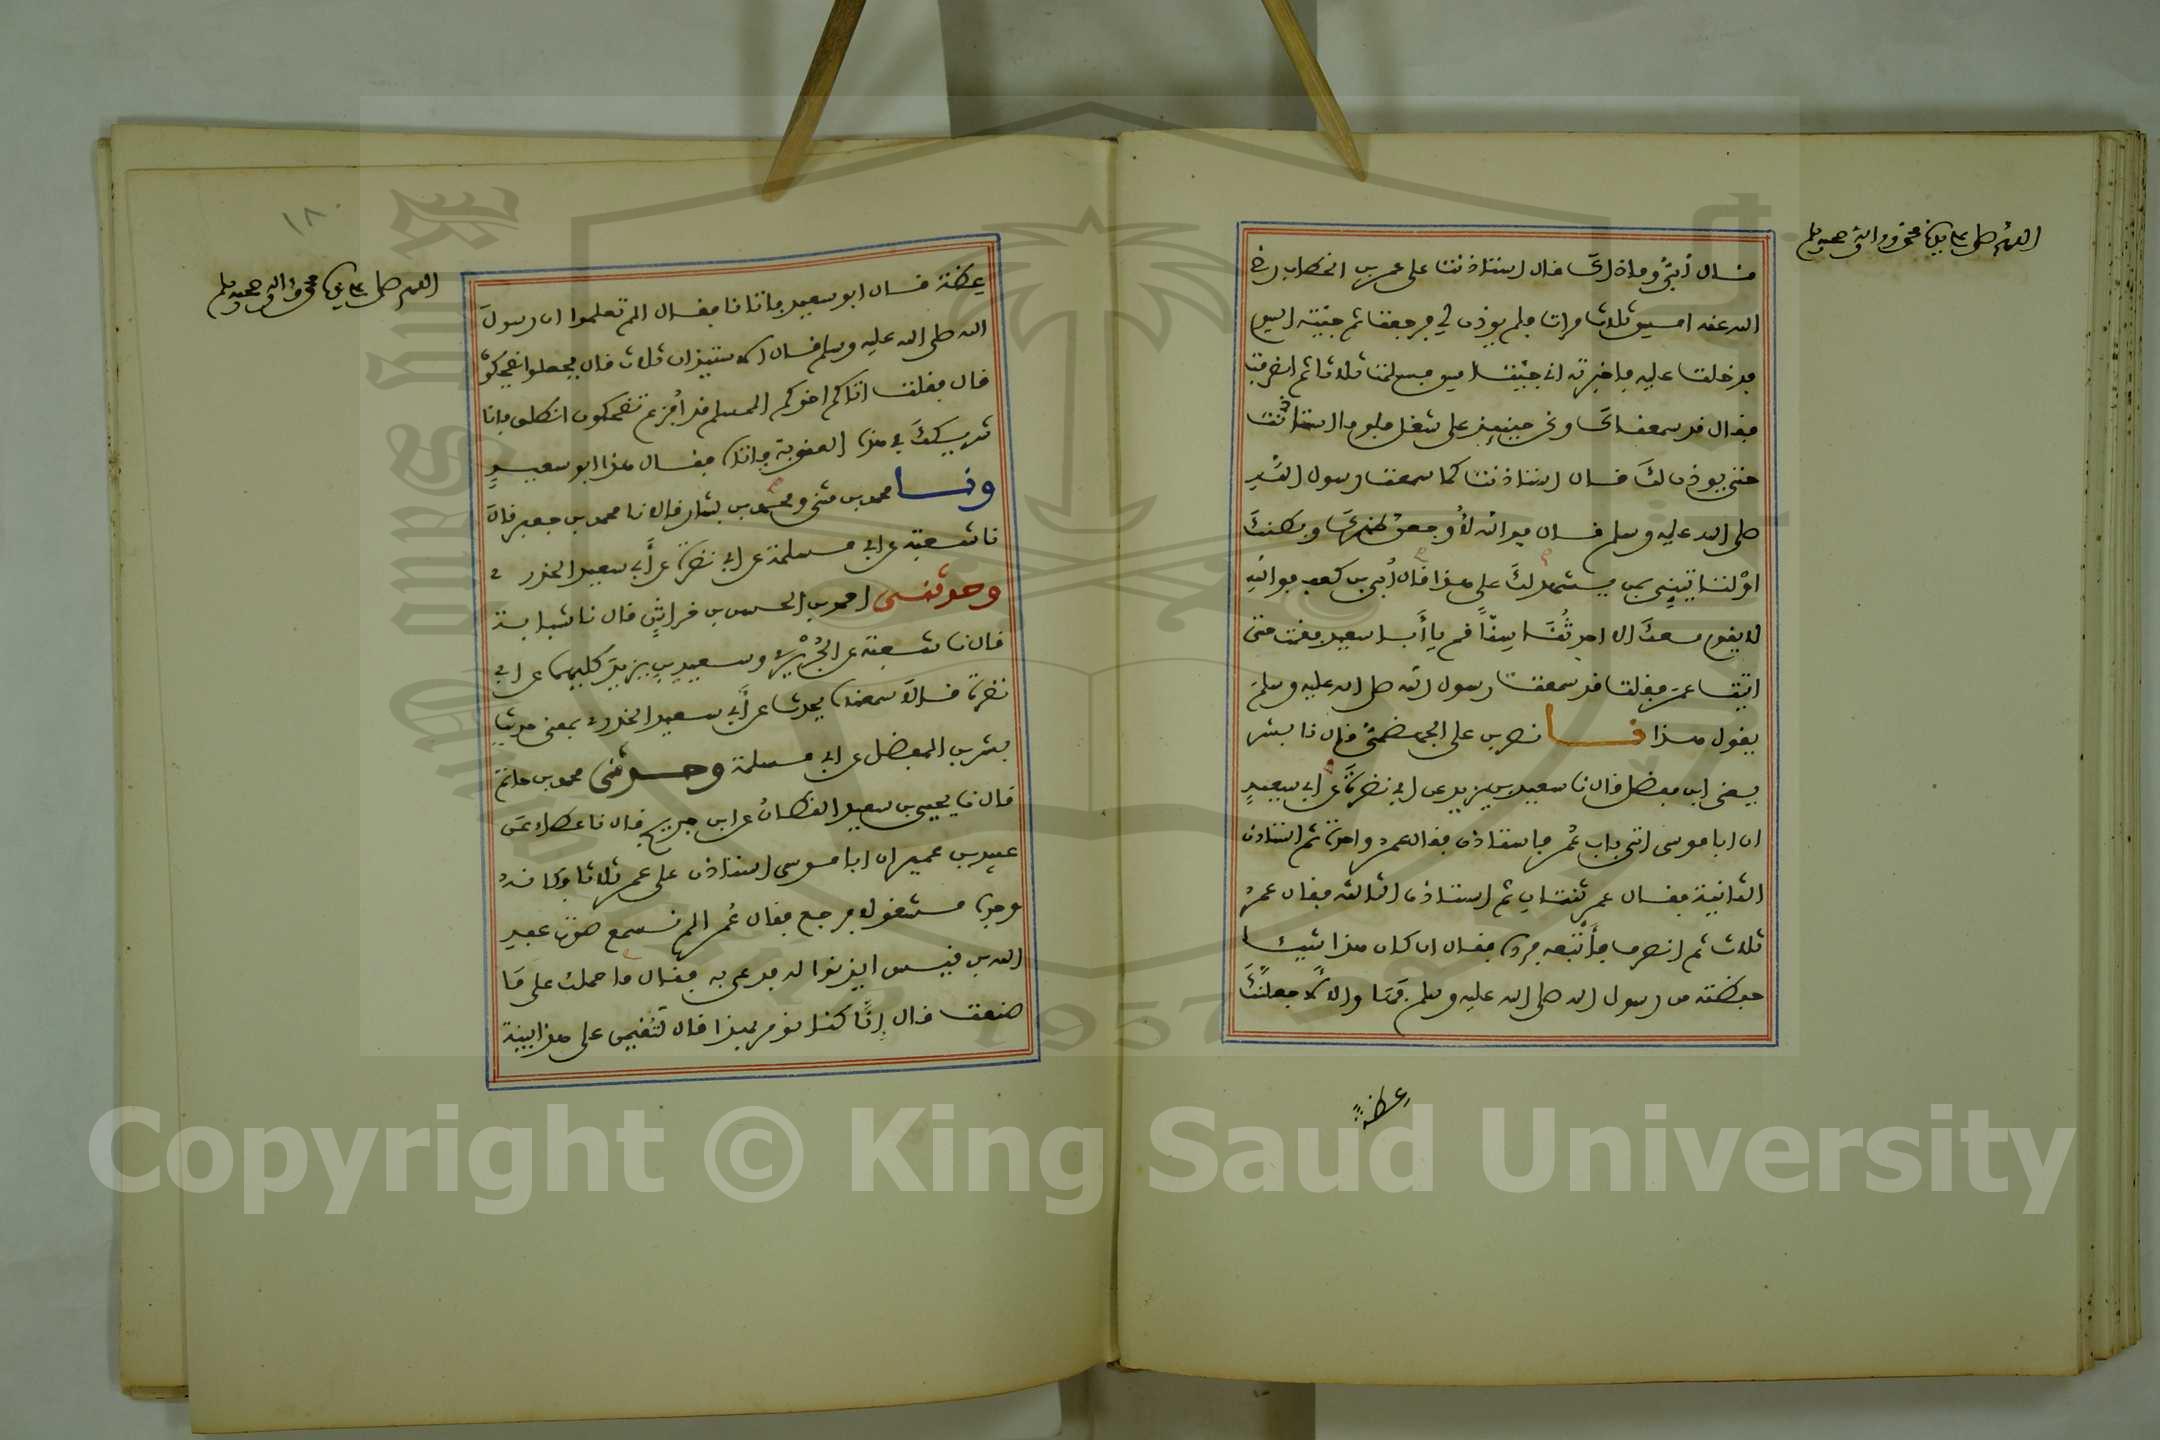 اللهم صل على سيدنا محمد وءاله وصحبه وسلم
فقال أبيّ وما ذاك قال استاذنت على عمر بن الخطاب رضي
الله عنه امس ثلاث مرات فلم يوذن لي فرجعت ثم جئته اليوم
فدخلت عليه فاخبرته اني جئت امس فسلمت ثلاثا ثم انصرفت
فقال قد سمعناك ونحن حينئذ على شغل فلو ما استاذنت
حتى يوذن لك قال استاذنت كما سمعت رسول الله
صلى الله عليه وسلم قال فوالله لأوجعن ظهرك وبطنك
اوْ لتاتينّي بمن يشهد لك على هذا فقال أبي بن كعب فوالله
لا يقوم معك الا احدثُنا سِنّاً قم يا أبا سعيد فقمت حتى
اتيت عمر فقلت قد سمعت رسول الله صلى الله عليه وسلم
يقول هذا نا نصر بن علي الجهضمي قال نا بشر
يعني ابن مفضل قال نا سعيد بن يزيد عن ابي نضرة عن ابي سعيد
ان ابا موسى اتى باب عُمر فاستاذن فقال عمر واحدة ثم استاذن
الثانية فقال عمر ثنتان ثم استاذن الثالثة فقال عمر
ثلاث ثم انصرف فأتبعه فرده فقال ان كان هذا شيئا
حفظته من رسول الله صلى الله عليه وسلم فها والا فلا جعلنّك
عظة
١٨٠
اللهم صل على سيدنا محمد وءاله وصحبه وسلم
عِظة قال ابو سعيد فاتانا فقال الم تعلموا ان رسول
الله صلى الله عليه وسلم قال الاستيذان ثلاث قال فجعلوا يضحكون
قال فقلت اتاكم اخوكم المسلم قد أفزع تضحكون انطلق فانا
شريكك في هذه العقوبة فاتاه فقال هذا ابو سعيد
ونا محمد بن مثنى ومحمد بن بشار قالا نا محمد بن جعفر قال
نا شعبة عن ابي مسلمة عن ابي نضرة عن أبي سعيد الخدري
وحدثنى احمد بن الحسن بن خراش قال نا شبابة
قال نا شعبة عن الجُرَيْري وسعيد بن يزيد كليهما عن ابي
نضرة قالا سمعناه يحدث عن أبي سعيد الخدري بمعنى حديث
بشر بن المفضل عن ابي مسلمة وحدثنى محمد بن حاتم
قال نا يحيى بن سعيد القطان عن ابن جريج قال نا عطاء عن
عبيد بن عمير ان ابا موسى استاذن على عمر ثلاثا فكانه
وجده مشغولا فرجع فقال عُمر الم تسمع صوت عبد
الله بن قيس ايذنوا له فدعي به فقال ما حملك على ما
صنعت قال إنّا كنا نومر بهذا قال لتُقيمن على هذا بينة
Copyright © King Saud University
1957